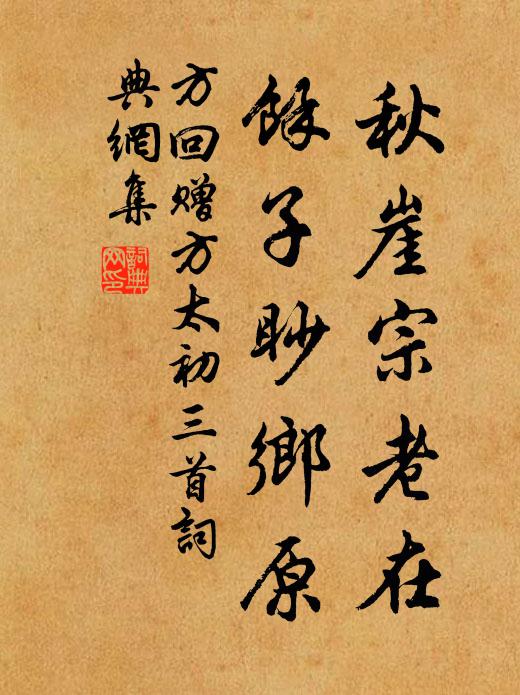 秋崖宗老在
餘子眇鄉原
方回贈方太初三首詞
典網集
詞典網印